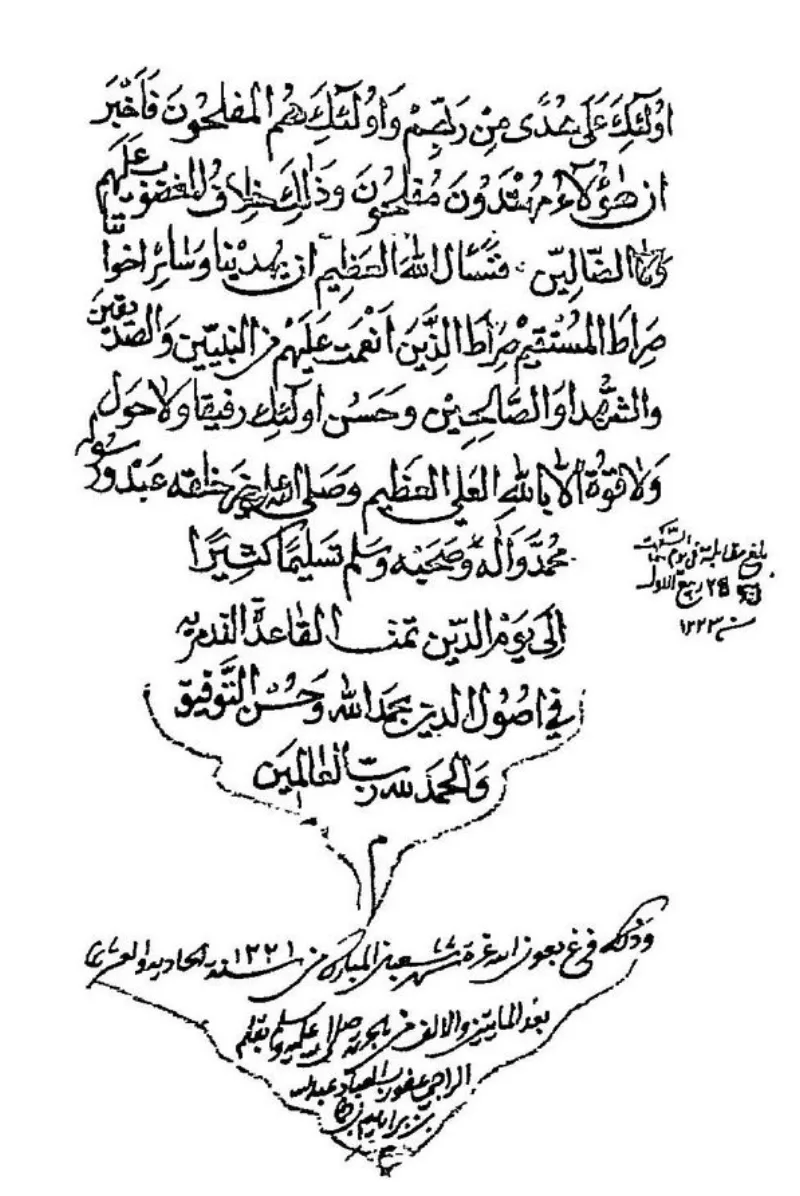 اولئك على هدى من ربهم وأولئك هم المفلحون فأخبر
ان هؤلاء مهتدون مفلحون وذلك خلاف المغضوب عليهم
ولا الضالين فنسأل الله العظيم ان يهدينا وسائر اخواننا
صراط المستقيم صراط الذين انعمت عليهم من النبيين والصديقين
والشهدا والصالحين وحسن اولئك رفيقا ولا حول
ولا قوة الا بالله العلي العظيم وصلى الله على خير خلقه عبده ورسوله
محمد وآله وصحبه وسلم تسليما كثيرا
الى يوم الدين تمت القاعدة التدمريه
في اصول الدين بحمد الله وحسن التوفيق
والحمد لله رب العالمين
م
بلغ مقابلة في يوم السبت
٢٥ ربيع الاول
سنة ١٢٢٣
وذلك في غرة شهر شعبان المبارك من سنة ١٢٢١ الحاديه والعشرين
بعد المايتين والالف من هجرته صلى الله عليه وسلم بقلم
الراجي عفو رب العباد عبد الله
بن ابراهيم بن